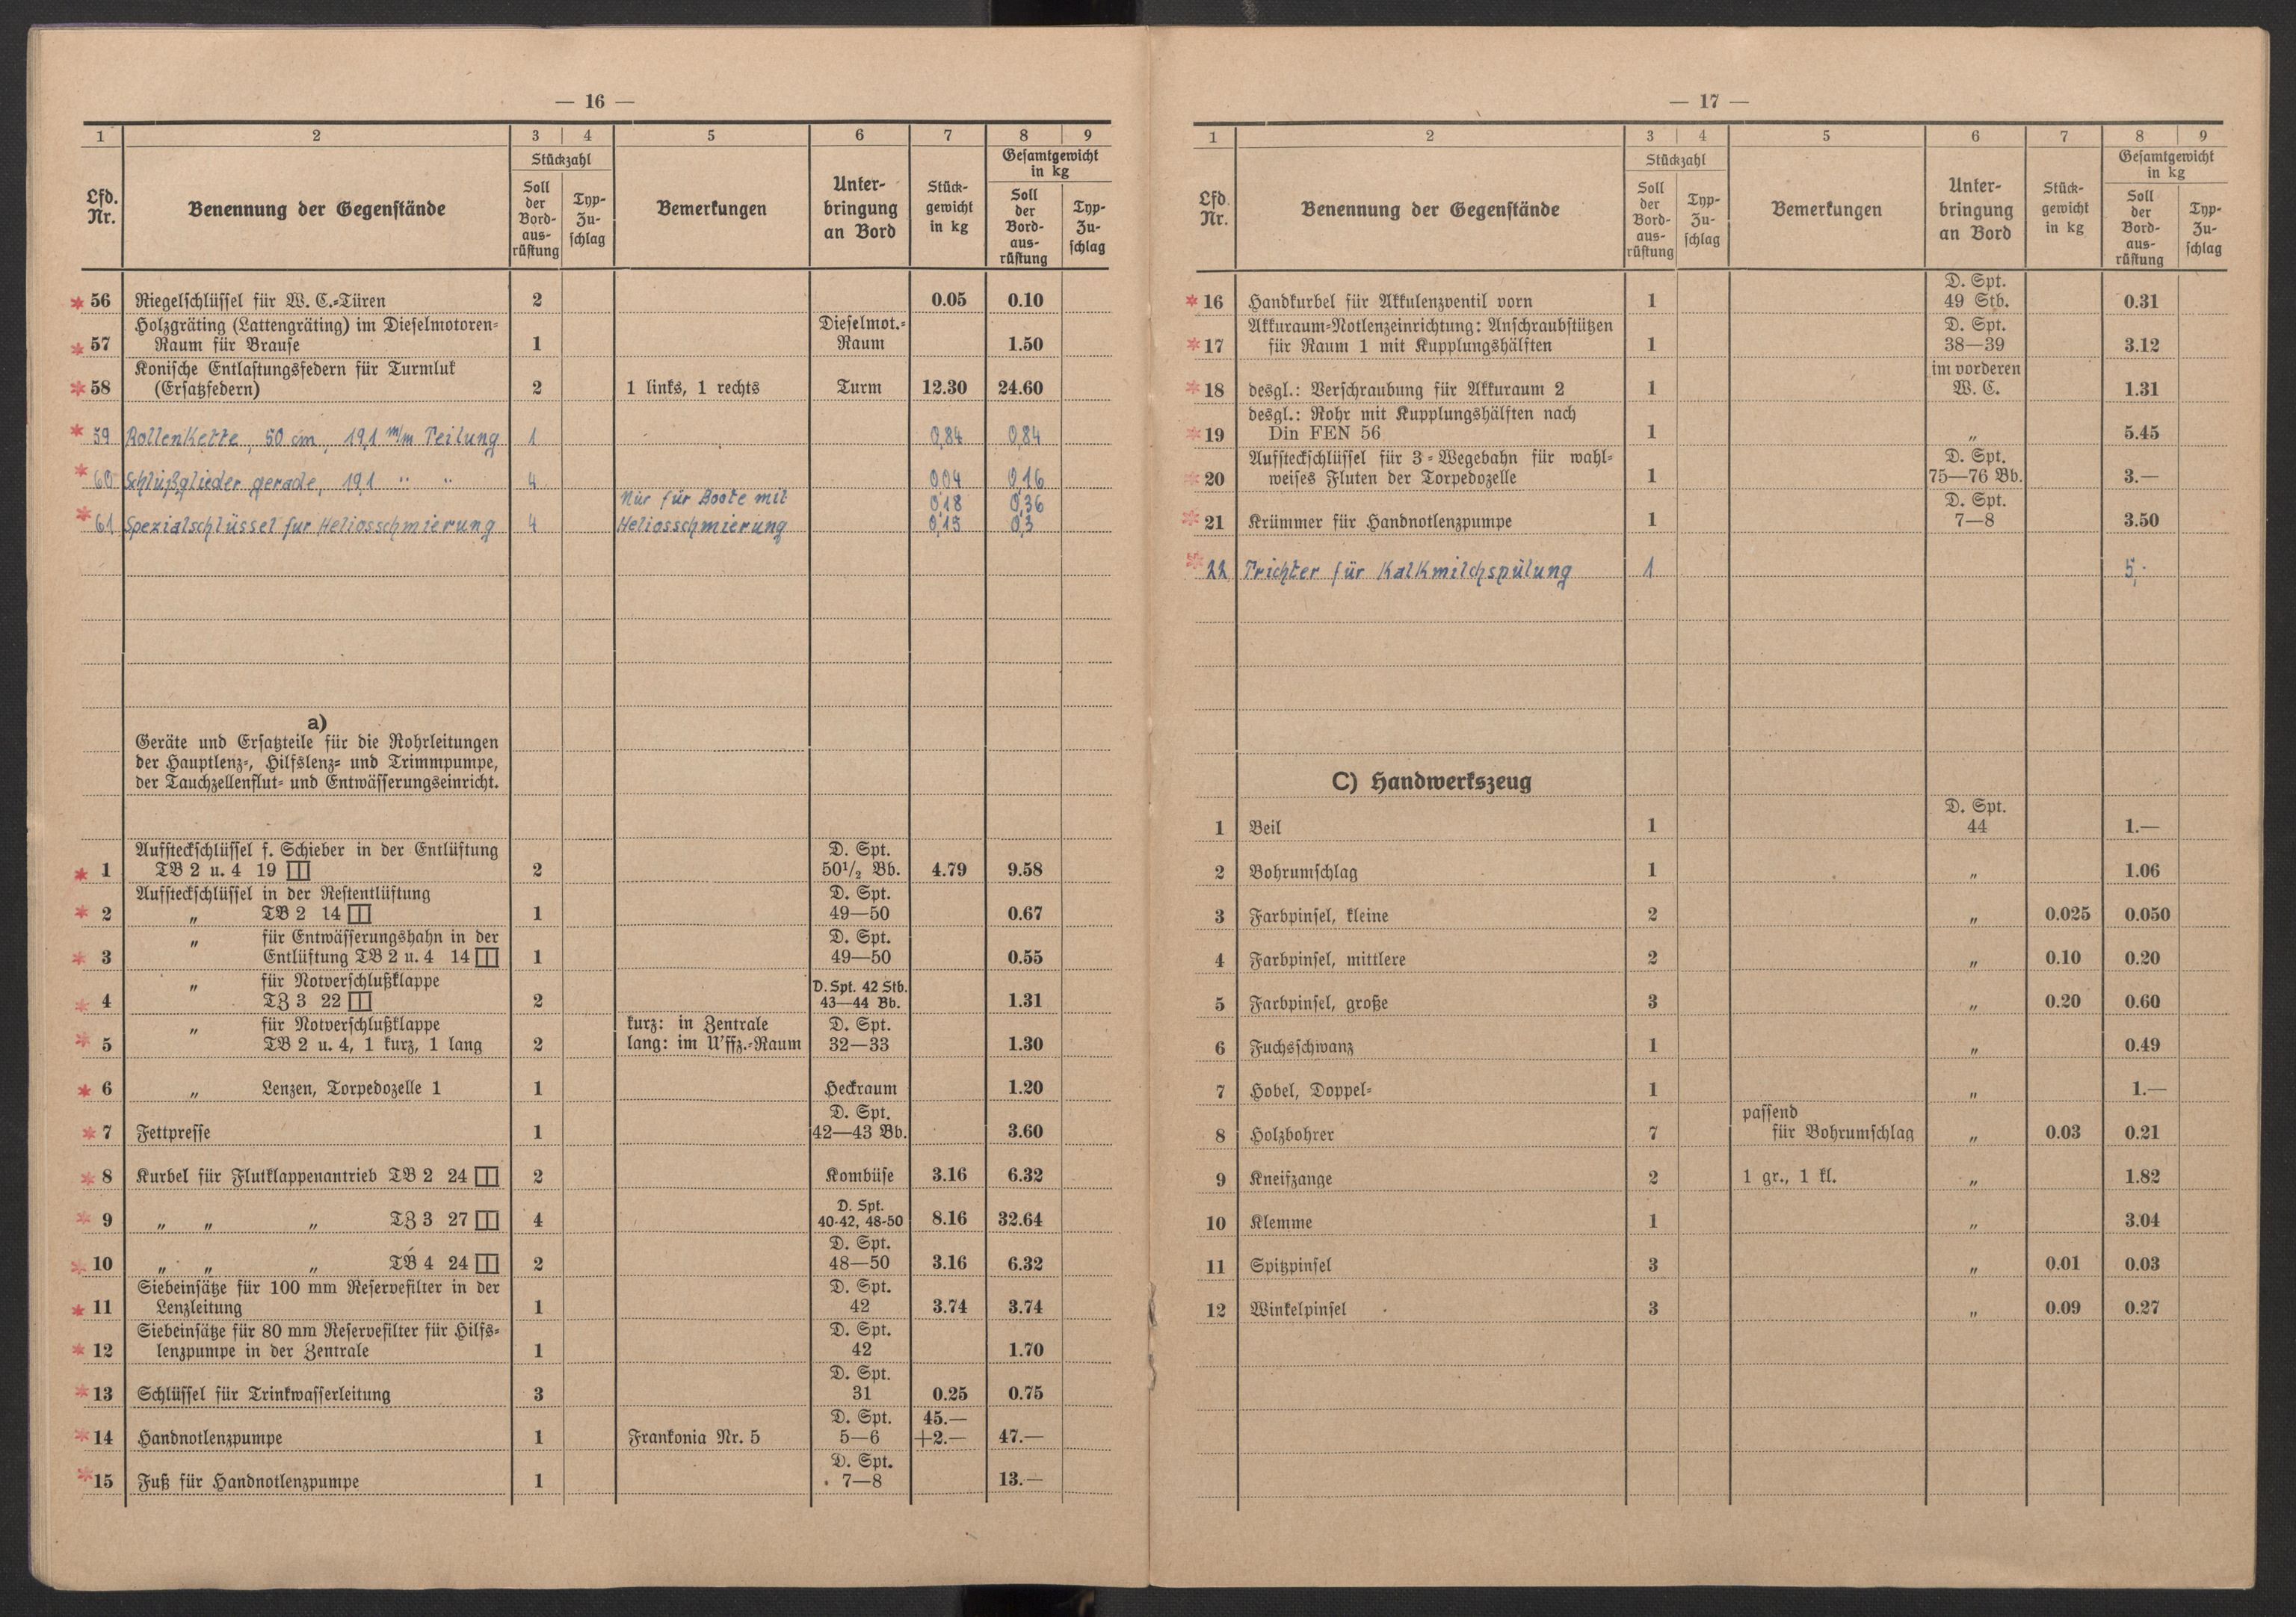 — 16 —
1 2 3 4 5 6 7 8 9
Lfd. Nr. Benennung der Gegenstände Stückzahl Soll der Bord-aus-rüstung Typ-Zu-schlag Bemerkungen Unter-bringung an Bord Stück-gewicht in kg Gesamtgewicht in kg Soll der Bord-aus-rüstung Typ-Zu-schlag
56 Riegelschlüssel für W. C.-Türen 2 0.05 0.10
Holzgräting (Lattengräting) im Dieselmotoren- Dieselmot.-
57 Raum für Brause 1 Raum 1.50
Konische Entlastungsfedern für Turmluk
58 (Ersatzfedern) 2 1 links, 1 rechts Turm 12.30 24.60
59 Rollenkette, 50 cm, 19,1 m/m Teilung 1 0,84 0,84
60 Schlußglieder gerade, 19,1 " " 4 0,04 0,16
Nur für Boote mit 0,18 0,36
61 Spezialschlüssel für Heliosschmierung 4 Heliosschmierung 0,15 0,3
a)
Geräte und Ersatzteile für die Rohrleitungen
der Hauptlenz-, Hilfslenz- und Trimmpumpe,
der Tauchzellenflut- und Entwässerungseinricht.
Aufsteckschlüssel f. Schieber in der Entlüftung D. Spt.
1 TB 2 u. 4 19 2 50½ Bb. 4.79 9.58
Aufsteckschlüssel in der Restentlüftung D. Spt.
2 " TB 2 14 1 49—50 0.67
" für Entwässerungshahn in der D. Spt.
3 Entlüftung TB 2 u. 4 14 1 49—50 0.55
" für Notverschlußklappe D. Spt. 42 Stb.
4 TZ 3 22 2 43—44 Bb. 1.31
" für Notverschlußklappe kurz: in Zentrale D. Spt.
5 TB 2 u. 4, 1 kurz, 1 lang 2 lang: im U'ffz.-Raum 32—33 1.30
6 " Lenzen, Torpedozelle 1 1 Heckraum 1.20
D. Spt.
7 Fettpresse 1 42—43 Bb. 3.60
8 Kurbel für Flutklappenantrieb TB 2 24 2 Kombüse 3.16 6.32
D. Spt.
9 " " " TZ 3 27 4 40-42, 48-50 8.16 32.64
D. Spt.
10 " " " TB 4 24 2 48—50 3.16 6.32
Siebeinsätze für 100 mm Reservefilter in der D. Spt.
11 Lenzleitung 1 42 3.74 3.74
Siebeinsätze für 80 mm Reservefilter für Hilfs- D. Spt.
12 lenzpumpe in der Zentrale 1 42 1.70
D. Spt.
13 Schlüssel für Trinkwasserleitung 3 31 0.25 0.75
D. Spt. 45.—
14 Handnotlenzpumpe 1 Frankonia Nr. 5 5—6 +2.— 47.—
D. Spt.
15 Fuß für Handnotlenzpumpe 1 7—8 13.—
— 17 —
1 2 3 4 5 6 7 8 9
Lfd. Nr. Benennung der Gegenstände Stückzahl Soll der Bord-aus-rüstung Typ-Zu-schlag Bemerkungen Unter-bringung an Bord Stück-gewicht in kg Gesamtgewicht in kg Soll der Bord-aus-rüstung Typ-Zu-schlag
D. Spt.
16 Handkurbel für Akkulenzventil vorn 1 49 Stb. 0.31
Akkuraum-Notlenzeinrichtung: Anschraubstützen D. Spt.
17 für Raum 1 mit Kupplungshälften 1 38—39 3.12
im vorderen
18 desgl.: Verschraubung für Akkuraum 2 1 W. C. 1.31
desgl.: Rohr mit Kupplungshälften nach
19 Din FEN 56 1 " 5.45
Aufsteckschlüssel für 3-Wegebahn für wahl- D. Spt.
20 weises Fluten der Torpedozelle 1 75—76 Bb. 3.—
D. Spt.
21 Krümmer für Handnotlenzpumpe 1 7—8 3.50
22 Trichter für Kalkmilchspülung 1 5,-
C) Handwerkszeug
D. Spt.
1 Beil 1 44 1.—
2 Bohrumschlag 1 " 1.06
3 Farbpinsel, kleine 2 " 0.025 0.050
4 Farbpinsel, mittlere 2 " 0.10 0.20
5 Farbpinsel, große 3 " 0.20 0.60
6 Fuchsschwanz 1 " 0.49
7 Hobel, Doppel- 1 " 1.—
passend
8 Holzbohrer 7 für Bohrumschlag " 0.03 0.21
9 Kneifzange 2 1 gr., 1 kl. " 1.82
10 Klemme 1 " 3.04
11 Spitzpinsel 3 " 0.01 0.03
12 Winkelpinsel 3 " 0.09 0.27